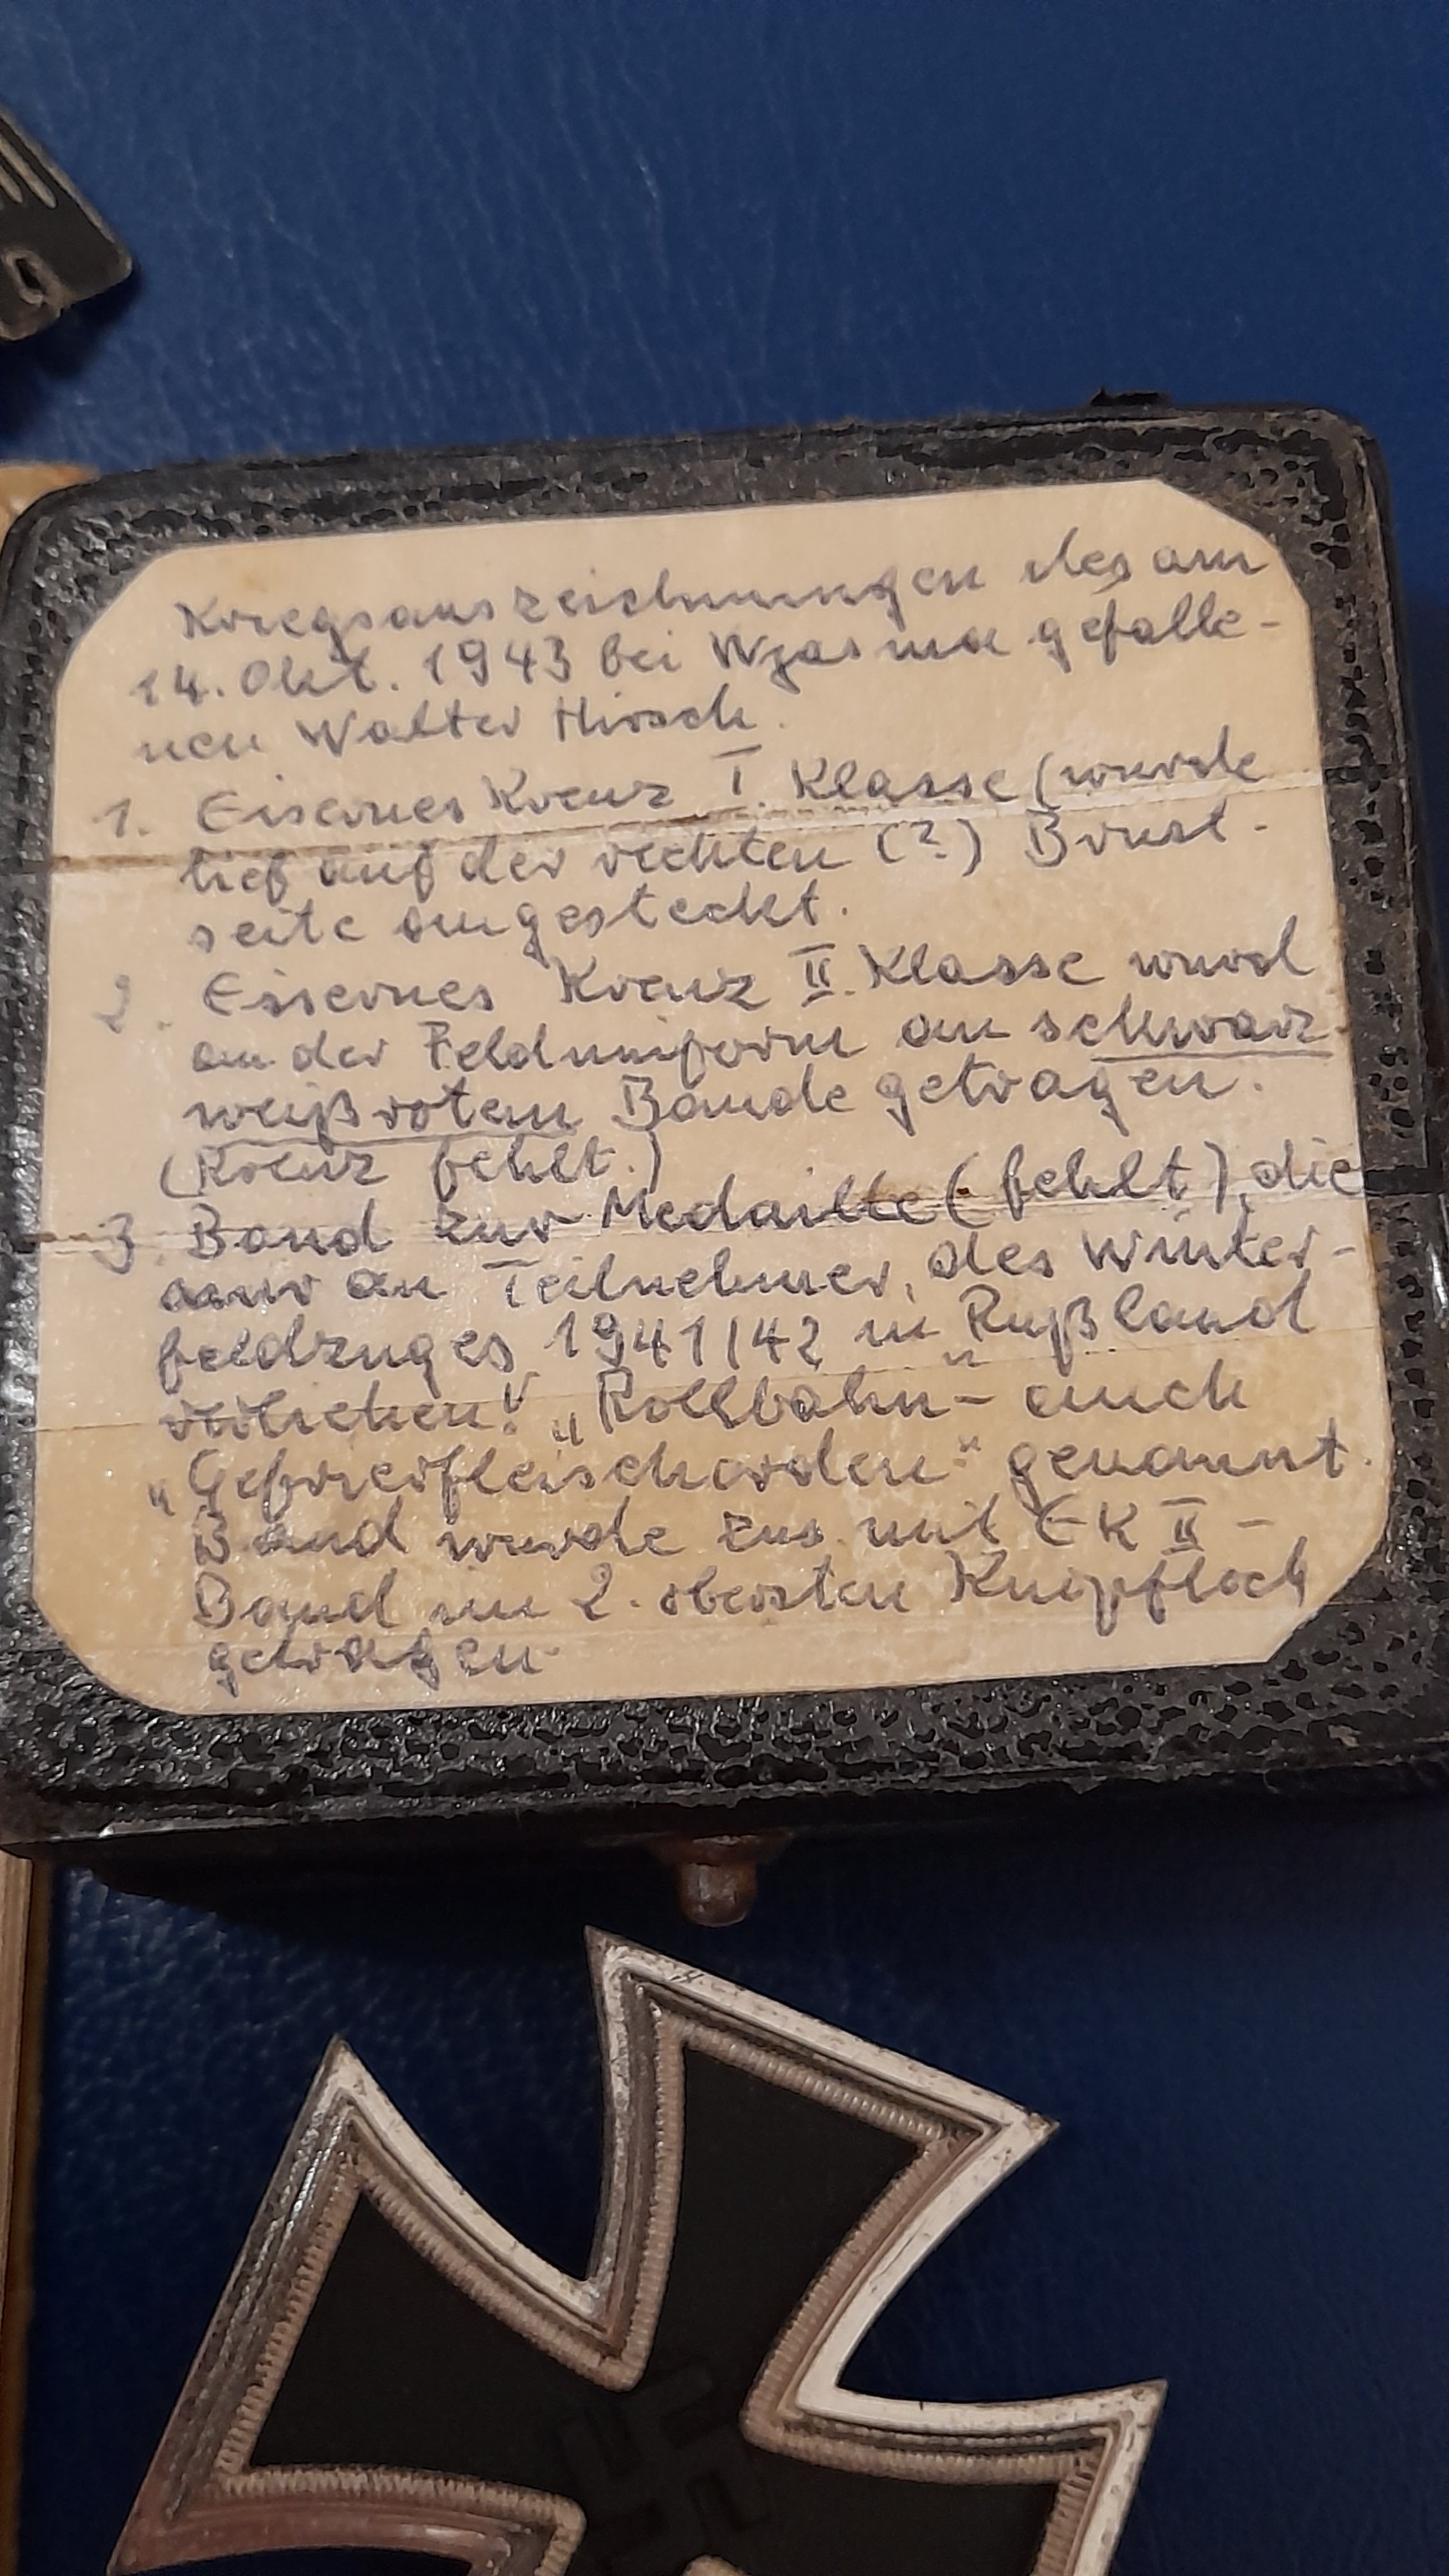 Kriegsauszeichnungen des am
14. Okt. 1943 bei Wjasma gefalle-
nen Walter Hirsch.
1. Eisernes Kreuz I. Klasse (wurde
tief auf der rechten (?) Brust-
seite angesteckt.
2. Eisernes Kreuz II. Klasse wurd
an der Felduniform an schwarz
weißroten Bande getragen.
(Kreuz fehlt.)
3. Band zur Medaille (fehlt), die
nur an Teilnehmer, des Winter-
feldzuges 1941/42 in Rußland
verliehen! „Rollbahn"- auch
„Gefrierfleischorden" genannt.
Band wurde zus. mit EK II -
Band im 2. obersten Knopfloch
getragen.